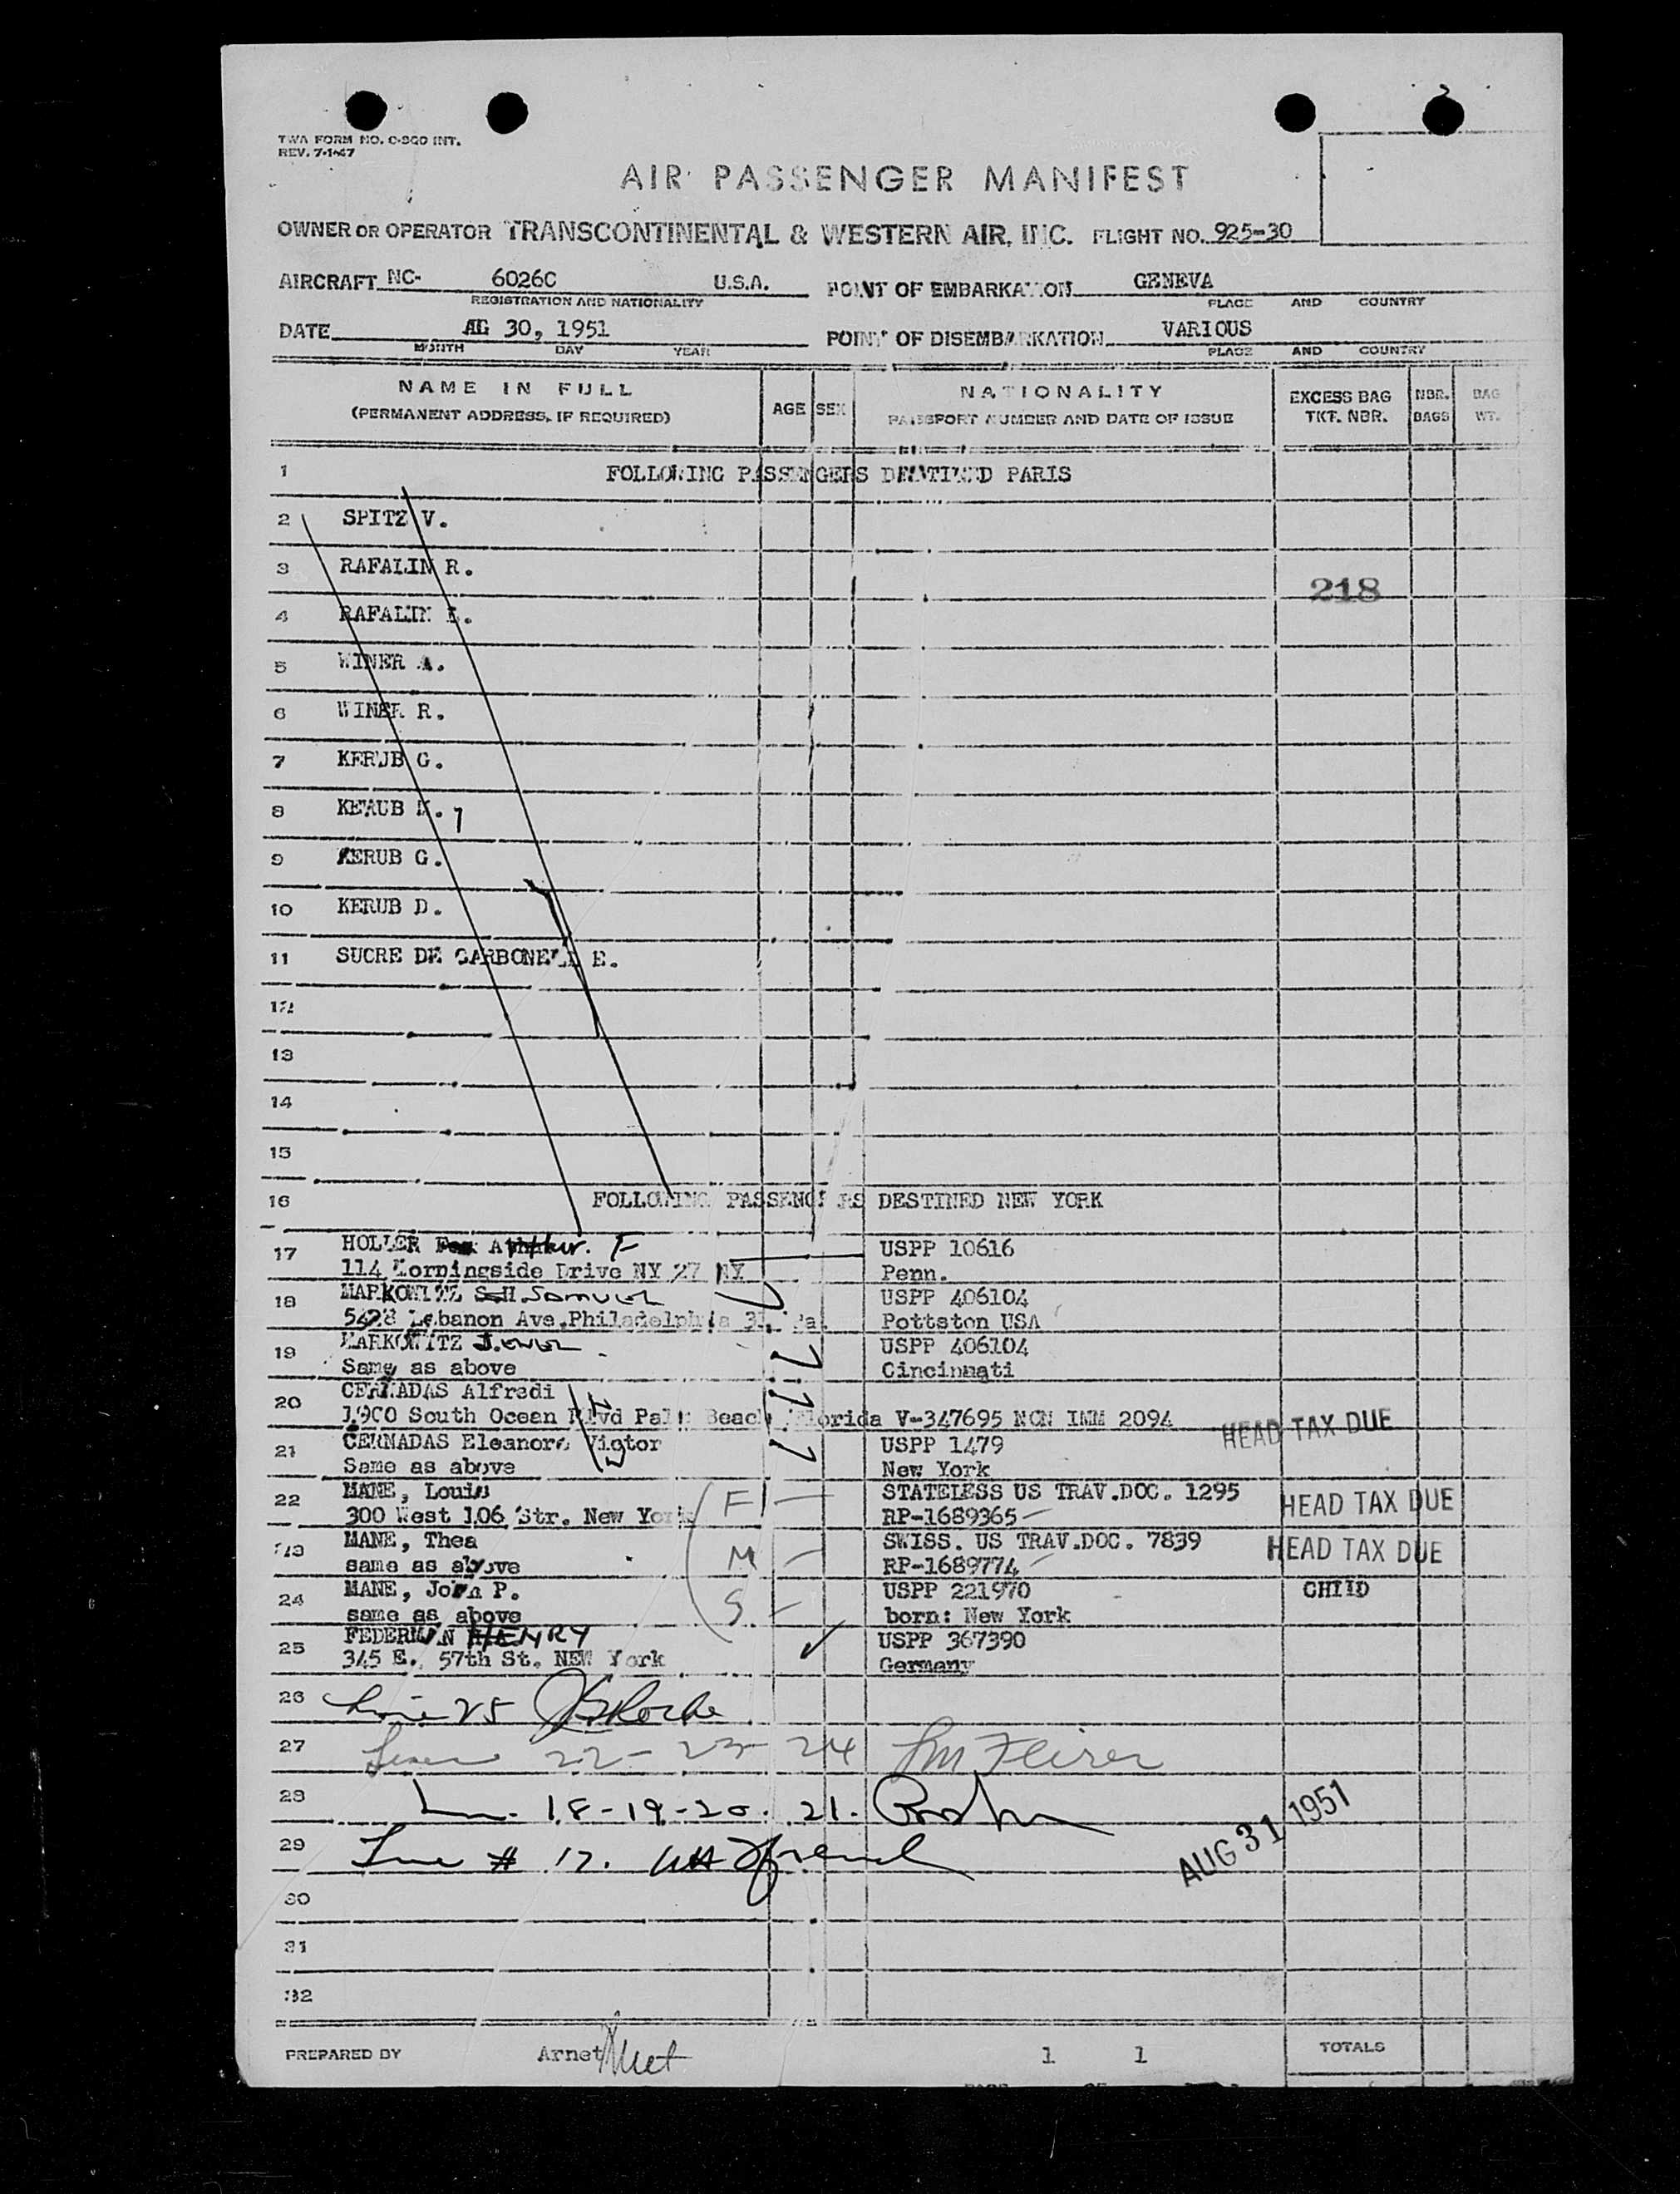 TWA FORM NO. C-900 INT.
REV. 7-1-47
AIR PASSENGER MANIFEST
OWNER OR OPERATOR TRANSCONTINENTAL & WESTERN AIR, INC. FLIGHT NO. 925-30
AIRCRAFT NC- 6026C U.S.A. POINT OF EMBARKATION GENEVA
REGISTRATION AND NATIONALITY PLACE AND COUNTRY
DATE AG 30, 1951 POINT OF DISEMBARKATION VARIOUS
MONTH DAY YEAR PLACE AND COUNTRY
NAME IN FULL AGE SEX NATIONALITY EXCESS BAG NBR. BAG
(PERMANENT ADDRESS, IF REQUIRED) PASSPORT NUMBER AND DATE OF ISSUE TKT. NBR. BAGS WT.
1 FOLLOWING PASSENGERS PARIS
2 SPITZ V.
3 RAFALIN R.
218
4 RAFALIN
5 WINER A.
6 WINER R.
7 KERUB G.
8 KERUB
9 KERUB G.
10 KERUB D.
11 SUCRE DE CARBONELL E.
12
13
14
15
16 FOLLOWING PASSENGERS DESTINED NEW YORK
17 HOLLER Arthur. F USPP 10616
114 Morningside Drive NY 27 NY Penn.
18 MARKOWITZ S.H. Samuel USPP 406104
5428 Lebanon Ave. Philadelphia 31, Pa. Pottston USA
19 MARKOWITZ USPP 406104
Same as above Cincinnati
20 CERNADAS Alfredi
1900 South Ocean Blvd Palm Beach Florida V-347695 NON IMM 2094 HEAD TAX DUE
21 CERNADAS Eleanora Victor USPP 1479
Same as above New York
22 MANE, Louis F STATELESS US TRAV.DOC. 1295 HEAD TAX DUE
300 West 106 Str. New York RP-1689365
23 MANE, Thea M SWISS. US TRAV.DOC. 7839 HEAD TAX DUE
same as above RP-1689774
24 MANE, John P. S USPP 221970 CHILD
same as above born: New York
25 FEDERMAN HENRY USPP 367390
345 E. 57th St. NEW York Germany
26 Line 25
27 Lines 22-23-24
28 Ln. 18-19-20. 21.
AUG 31 1951
29 Line # 17.
30
31
32
PREPARED BY Arnet 1 1 TOTALS